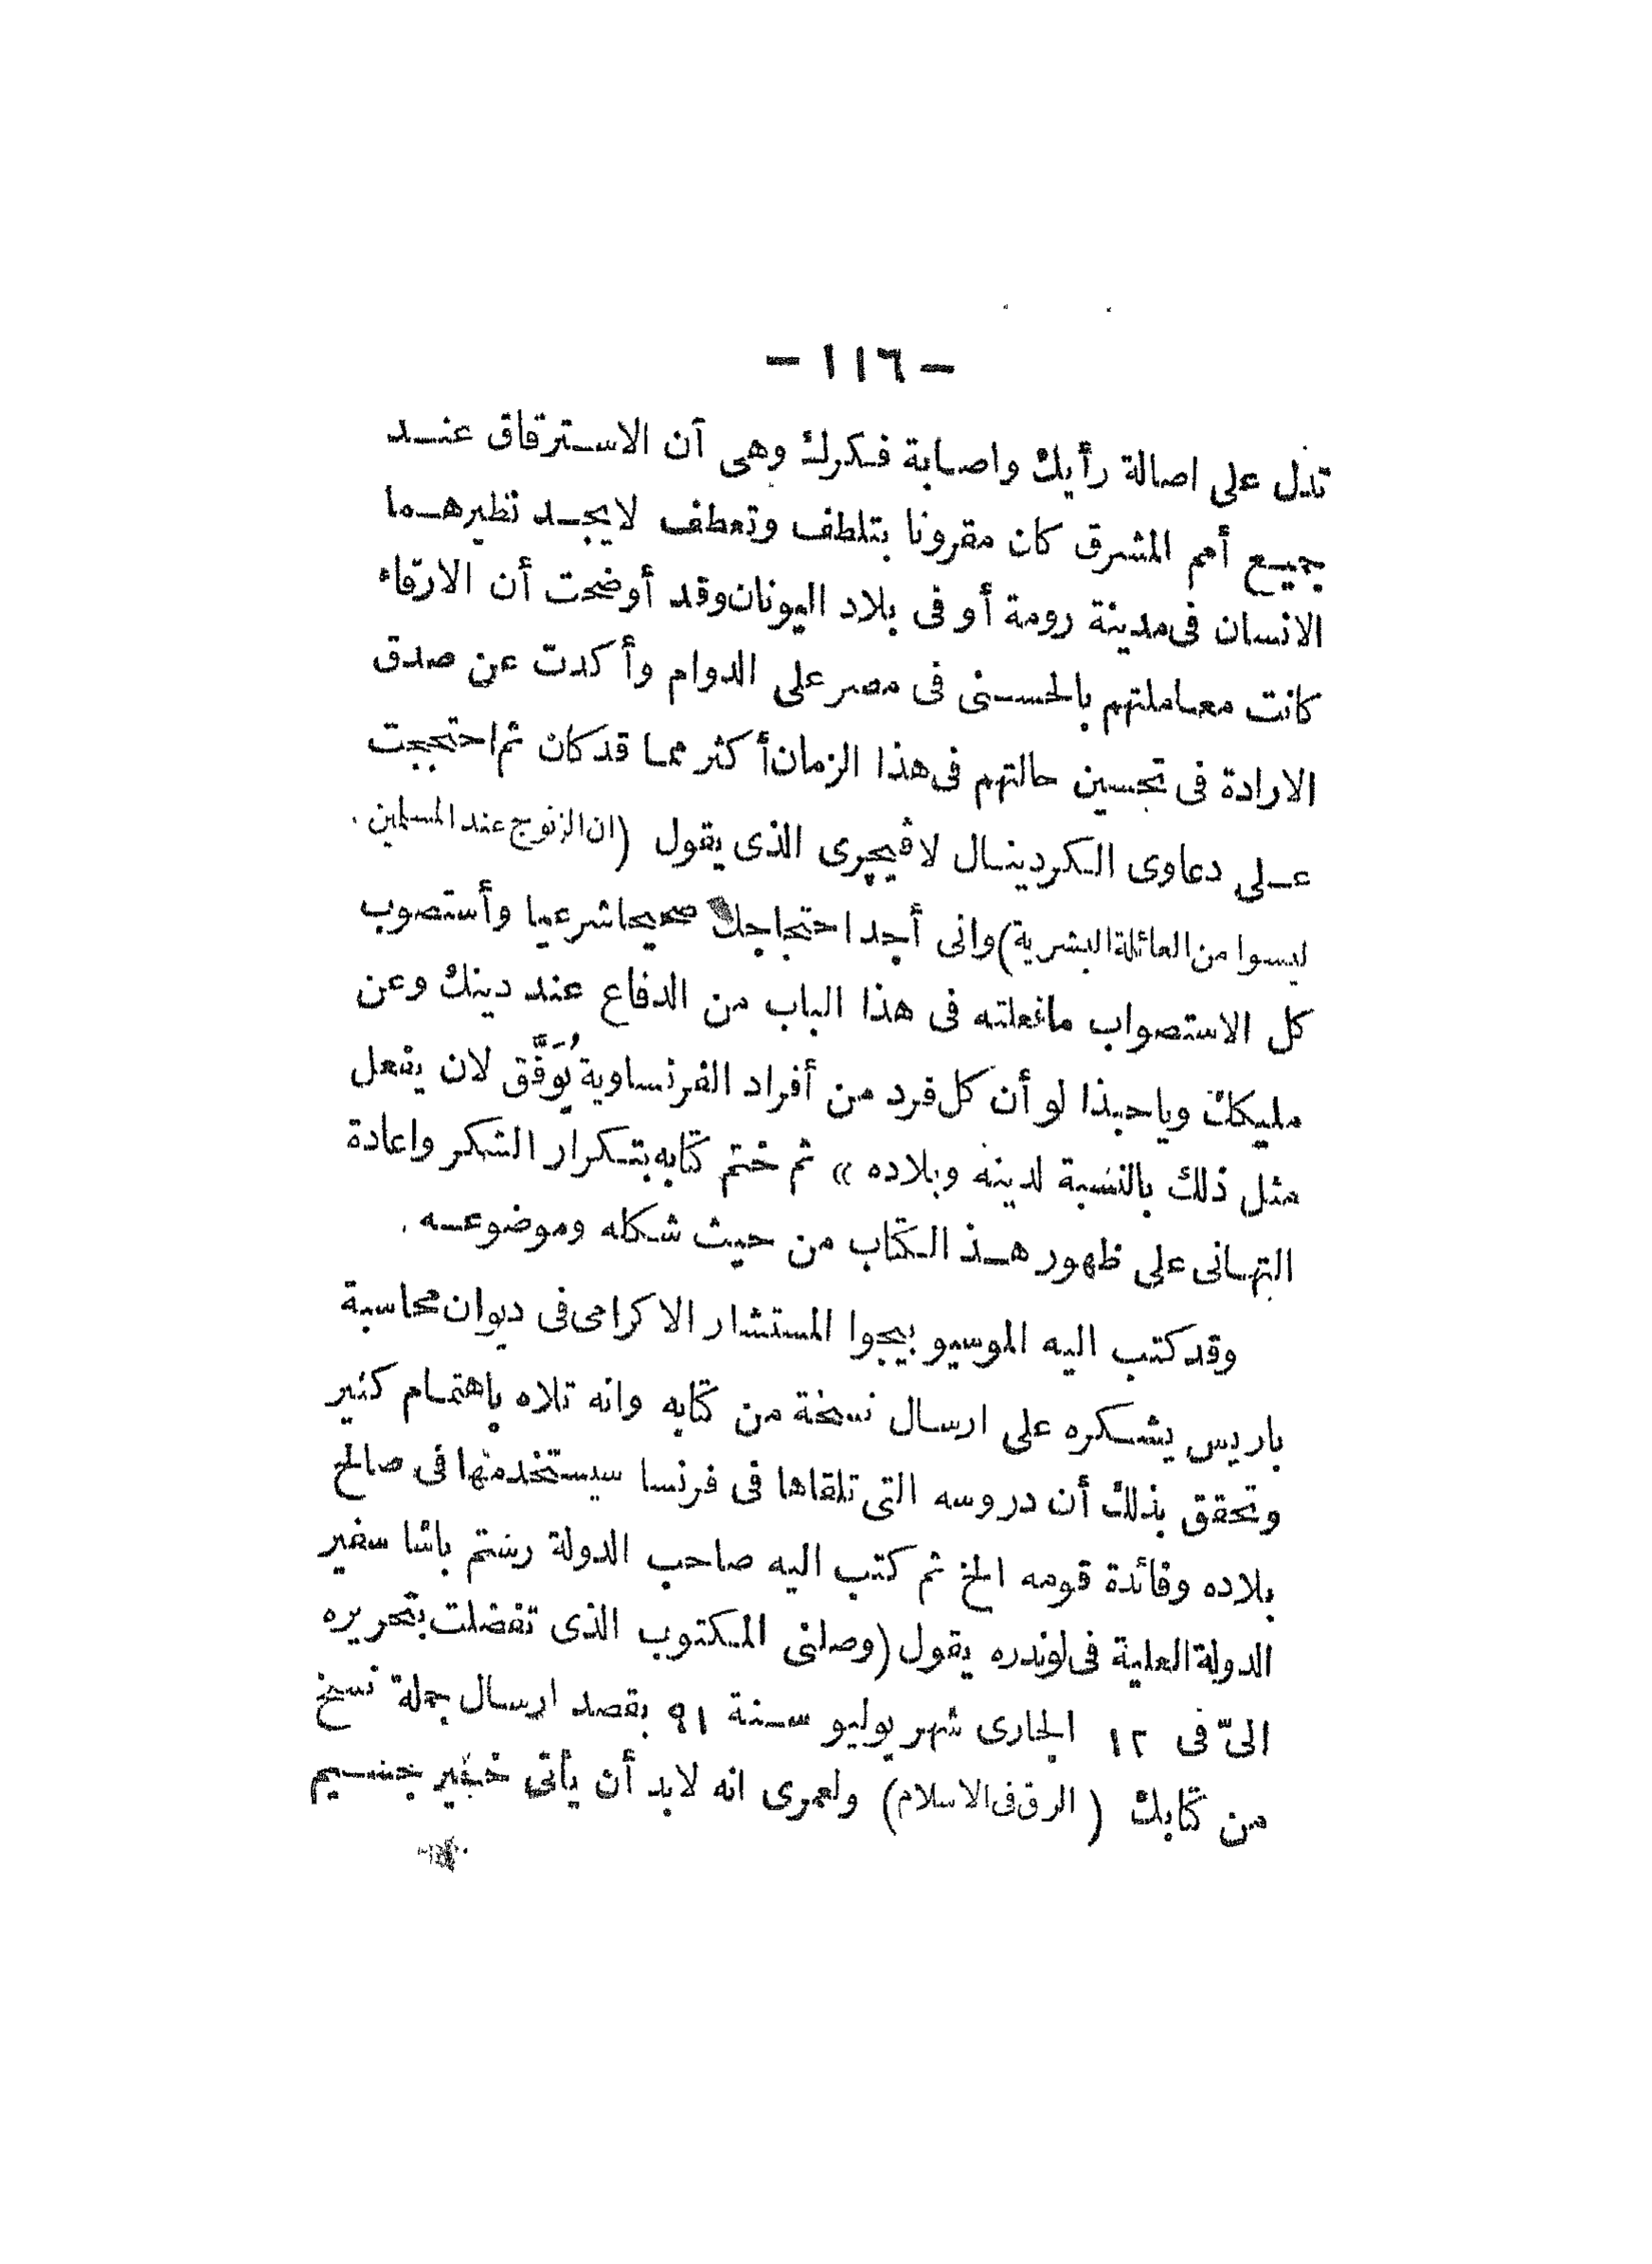 — ١١٦ —
تدل على اصالة رأيك واصابة فكرك وهى أن الاسترقاق عند
جميع أمم المشرق كان مقرونا بتلطف وتعطف لا يجد نظيرهما
الانسان فى مدينة رومة أو فى بلاد اليونان وقد أوضحت أن الارقاء
كانت معاملتهم بالحسنى فى مصر على الدوام وأكدت عن صدق
الارادة فى تحسين حالتهم فى هذا الزمان أكثر مما قد كان ثم احتججت
على دعاوى الكردينال لاڤيچرى الذى يقول (ان الزنوج عند المسلمين
ليسوا من العائلة البشرية) وانى أجد احتجاجك صحيحا شرعيا وأستصوب
كل الاستصواب مافعلته فى هذا الباب من الدفاع عند دينك وعن
مليكك وياحبذا لو أن كل فرد من أفراد الفرنساوية يُوَفَّق لان يفعل
مثل ذلك بالنسبة لدينه وبلاده » ثم ختم كتابه بتكرار الشكر واعادة
التهانى على ظهور هذ الكتاب من حيث شكله وموضوعه .
وقد كتب اليه الموسيو بيجوا المستشار الاكرامى فى ديوان محاسبة
باريس يشكره على ارسال نسخة من كتابه وانه تلاه باهتمام كثير
وتحقق بذلك أن دروسه التى تلقاها فى فرنسا سيستخدمها فى صالح
بلاده وفائدة قومه الخ ثم كتب اليه صاحب الدولة رستم باشا سفير
الدولة العلية فى لوندره يقول (وصلنى المكتوب الذى تفضلت بتحريره
الىّ فى ١٢ الجارى شهر يوليو سنة ٩١ بقصد ارسال جملة نسخ
من كتابك (الرق فى الاسلام) ولعمرى انه لابد أن يأتى خير جسيم